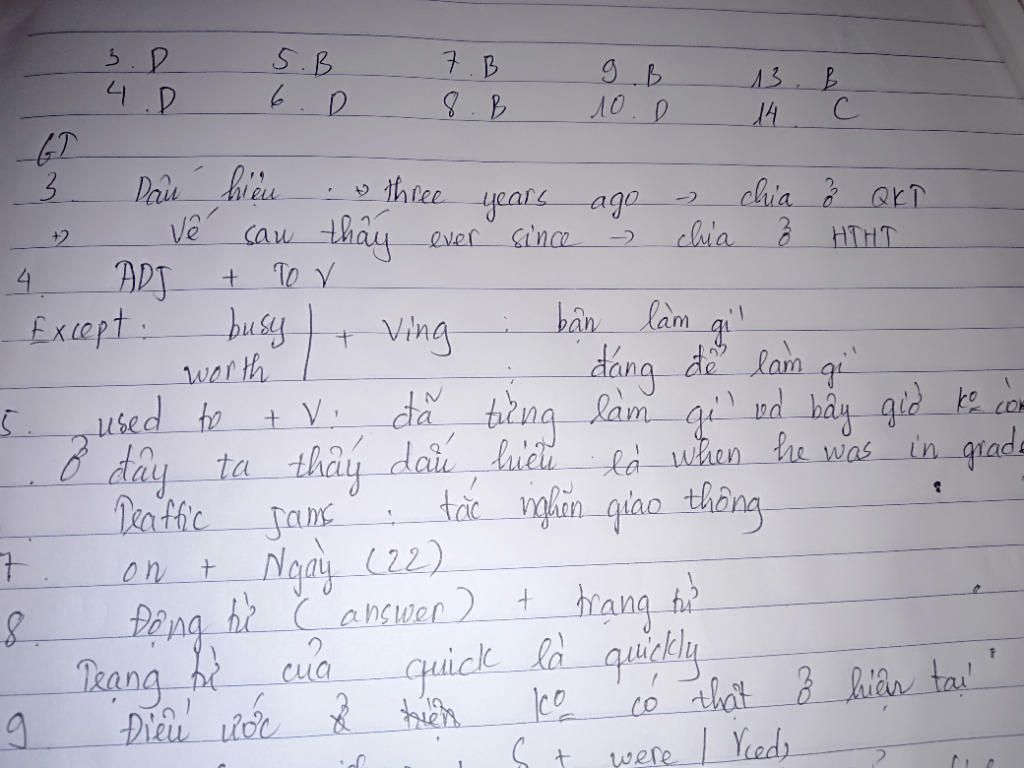 3. D 5. B 7. B 9. B 13. B
4. D 6. D 8. B 10. D 14. C
GT
3. Dấu hiệu : +) three years ago → chia ở QKĐ
+) Vế sau thấy ever since → chia ở HTHT
4. ADJ + TO V
Except: busy + Ving : bận làm gì
worth : đáng để làm gì
5. used to + V: đã từng làm gì và bây giờ ko còn
. Ở đây ta thấy dấu hiệu là when he was in grade
Traffic jams : tắc nghẽn giao thông
7. on + Ngày (22)
8. Động từ (answer) + trạng từ
Trạng từ của quick là quickly
9 Điều ước ko có thật ở hiện tại
S + were / Ved